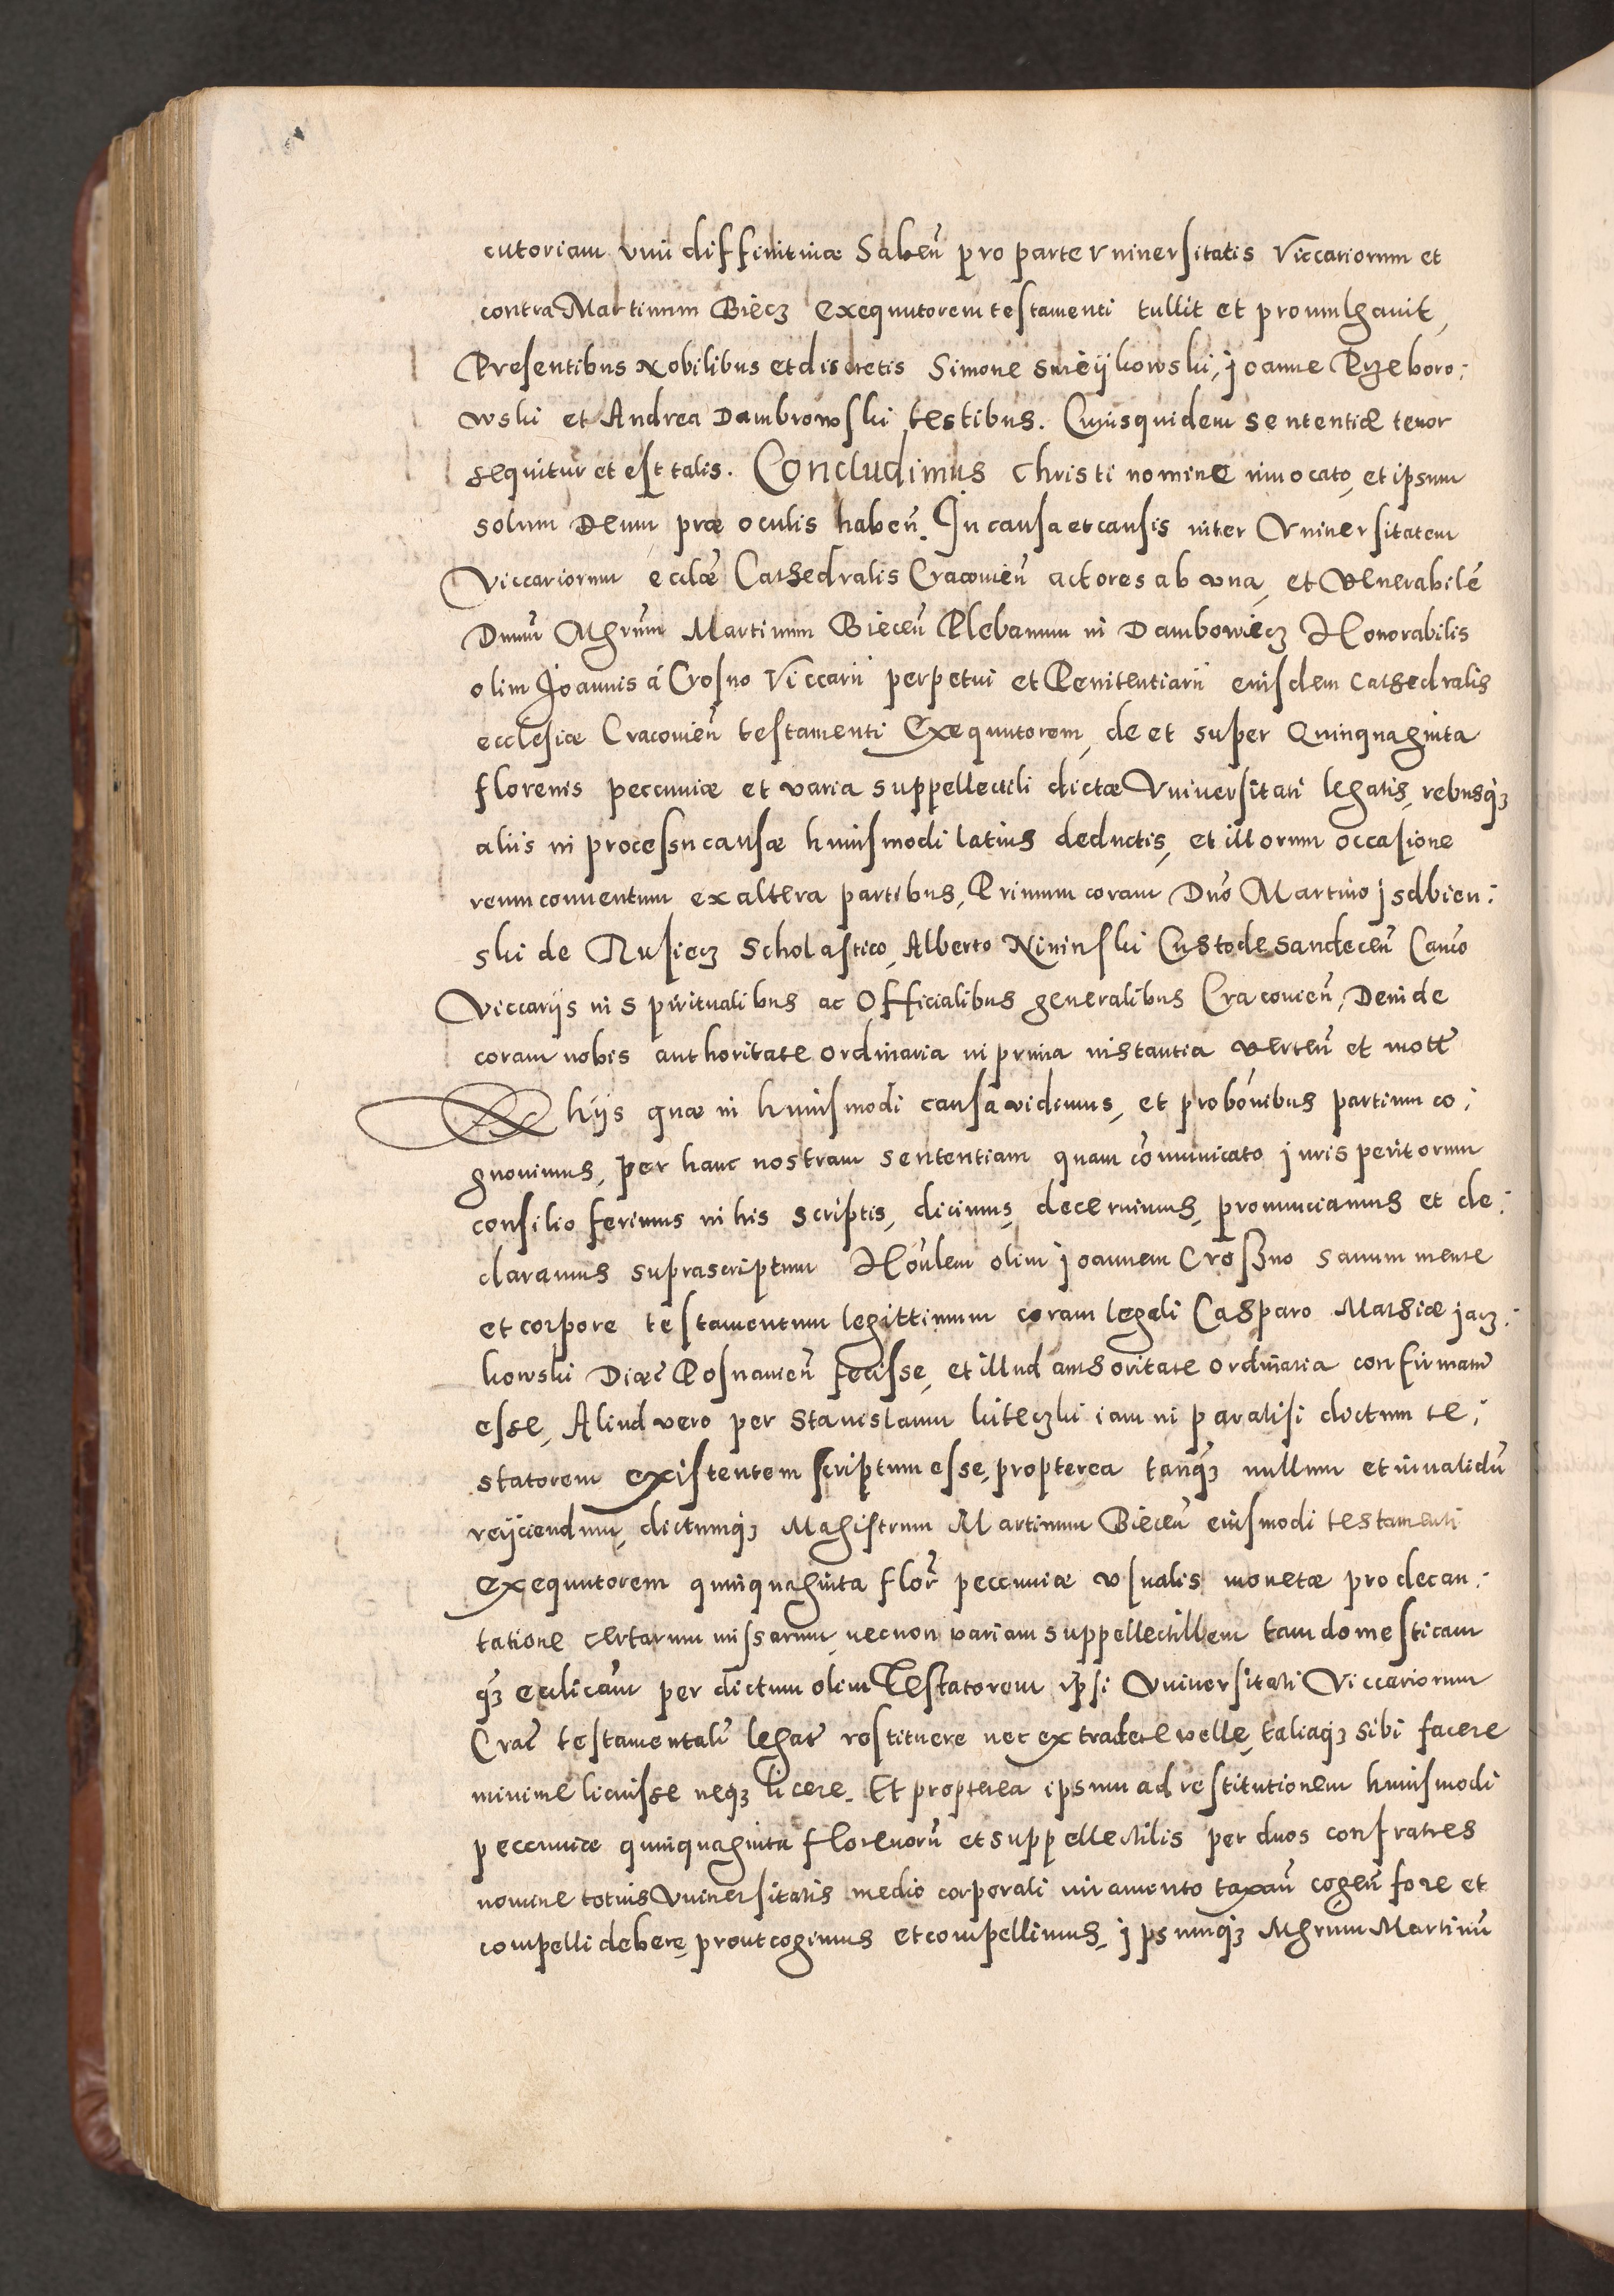 cutoriam vim diffinitivæ Saben̄ pro parte Vniversitatis Viccariorum et
contra Martinum Biecz exequutorem testamenti tullit et promulgavit,
Presentibus Nobilibus et discretis Simone Smeijkowski, Joanne Przeboro:
wski et Andrea Dambrowski testibus. Cuiusquidem sententiæ tenor
sequitur et est talis. Concludimus Christi nomine invocato, et ipsum
solum Deum præ oculis haben̄. In causa et causis inter Vniversitatem
Viccariorum eccl̄æ Cathedralis Cracovien̄ actores ab vna, et Venerabilē
Dnum Mgrum Martinum Biecen̄ Plebanum in Dambowiecz Honorabilis
olim Joannis á Crosno Viccarii perpetui et Penitentiarii eiusdem Cathedralis
ecclesiæ Cracovien̄ testamenti Exequutorem, de et super Quinquaginta
florenis peccuniæ et varia suppellectili dictæ Vniversitati legatis, rebusq3
aliis in processu causæ huiusmodi latius deductis, et illorum occasione
reum conventum ex altera partibus, Primum coram Dn̄o Martino Jsdbien:
ski de Rusiecz Scholastico, Alberto Nininski Custode Sandecen̄ Canco
Viccarijs in Spiritualibus ac Officialibus generalibus Cracovien̄, Deinde
coram nobis authoritate ordinaria in prima instantia verten̄ et mott̄
Ex hijs quæ in huiusmodi causa vidimus, et probōnibus partium co:
gnovimus, per hanc nostram sententiam quam cōmunicato juris peritorum
consilio ferimus in his scriptis, dicimus, decernimus, pronunciamus et de:
claramus suprascriptum Hon̄lem olim Joannem Croszno sanum mente
et corpore testamentum legittimum coram legali Casparo Mathiæ Jacz:
kowski Diæc̄ Posnanien̄ fecisse, et illud authoritate ordinaria confirmatū
esse, Aliud vero per Stanislaum kiteczki iam in paralisi dictum te:
statorem existentem scriptum esse, propterea tanq̄3 nullum et invalidū
reijciendum, dictumq3 Magistrum Martinum Biecen̄ eiusmodi testamenti
exequutorem quinquaginta flor̄ peccuniæ vsualis monetæ pro decan:
tatione certarum missarum, necnon variam suppellectillem tam domesticam
q̄3 ecclicam per dictum olim Testatorem ipsi Vniversitati Viccariorum
Crac̄ testamentalr̄ legat̄ restituere nec extradere velle, taliaq3 sibi facere
minime licuisse neq3 licere. Et propterea ipsum ad restitutionem huiusmodi
peccuniæ quinquaginta florenorū et suppellectilis per duos confratres
nomine totius Vniversitatis medio corporali iuramento taxan̄ cogen̄ fore et
compelli debere, prout cogimus et compellimus, ipsumq3 Mgrum Martinū